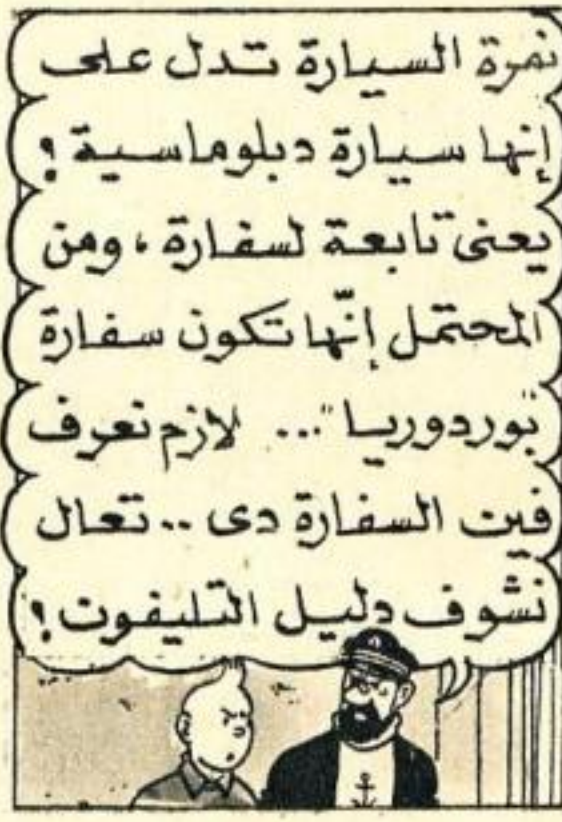 نمرة السيارة تدل على
إنها سيارة دبلوماسية ؟
يعنى تابعة لسفارة ، ومن
المحتمل إنّها تكون سفارة
"بوردوريا" ... لازم نعرف
فين السفارة دى .. تعال
نشوف دليل التليفون ؟